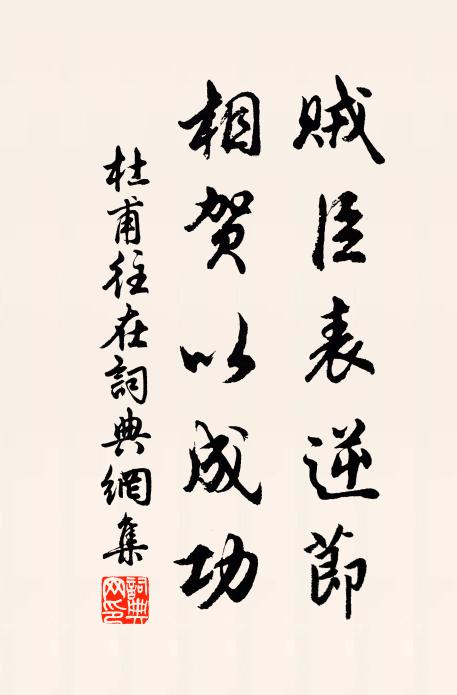 贼臣表逆節
相贺以成功
杜甫往在詞典網集
詞典网印